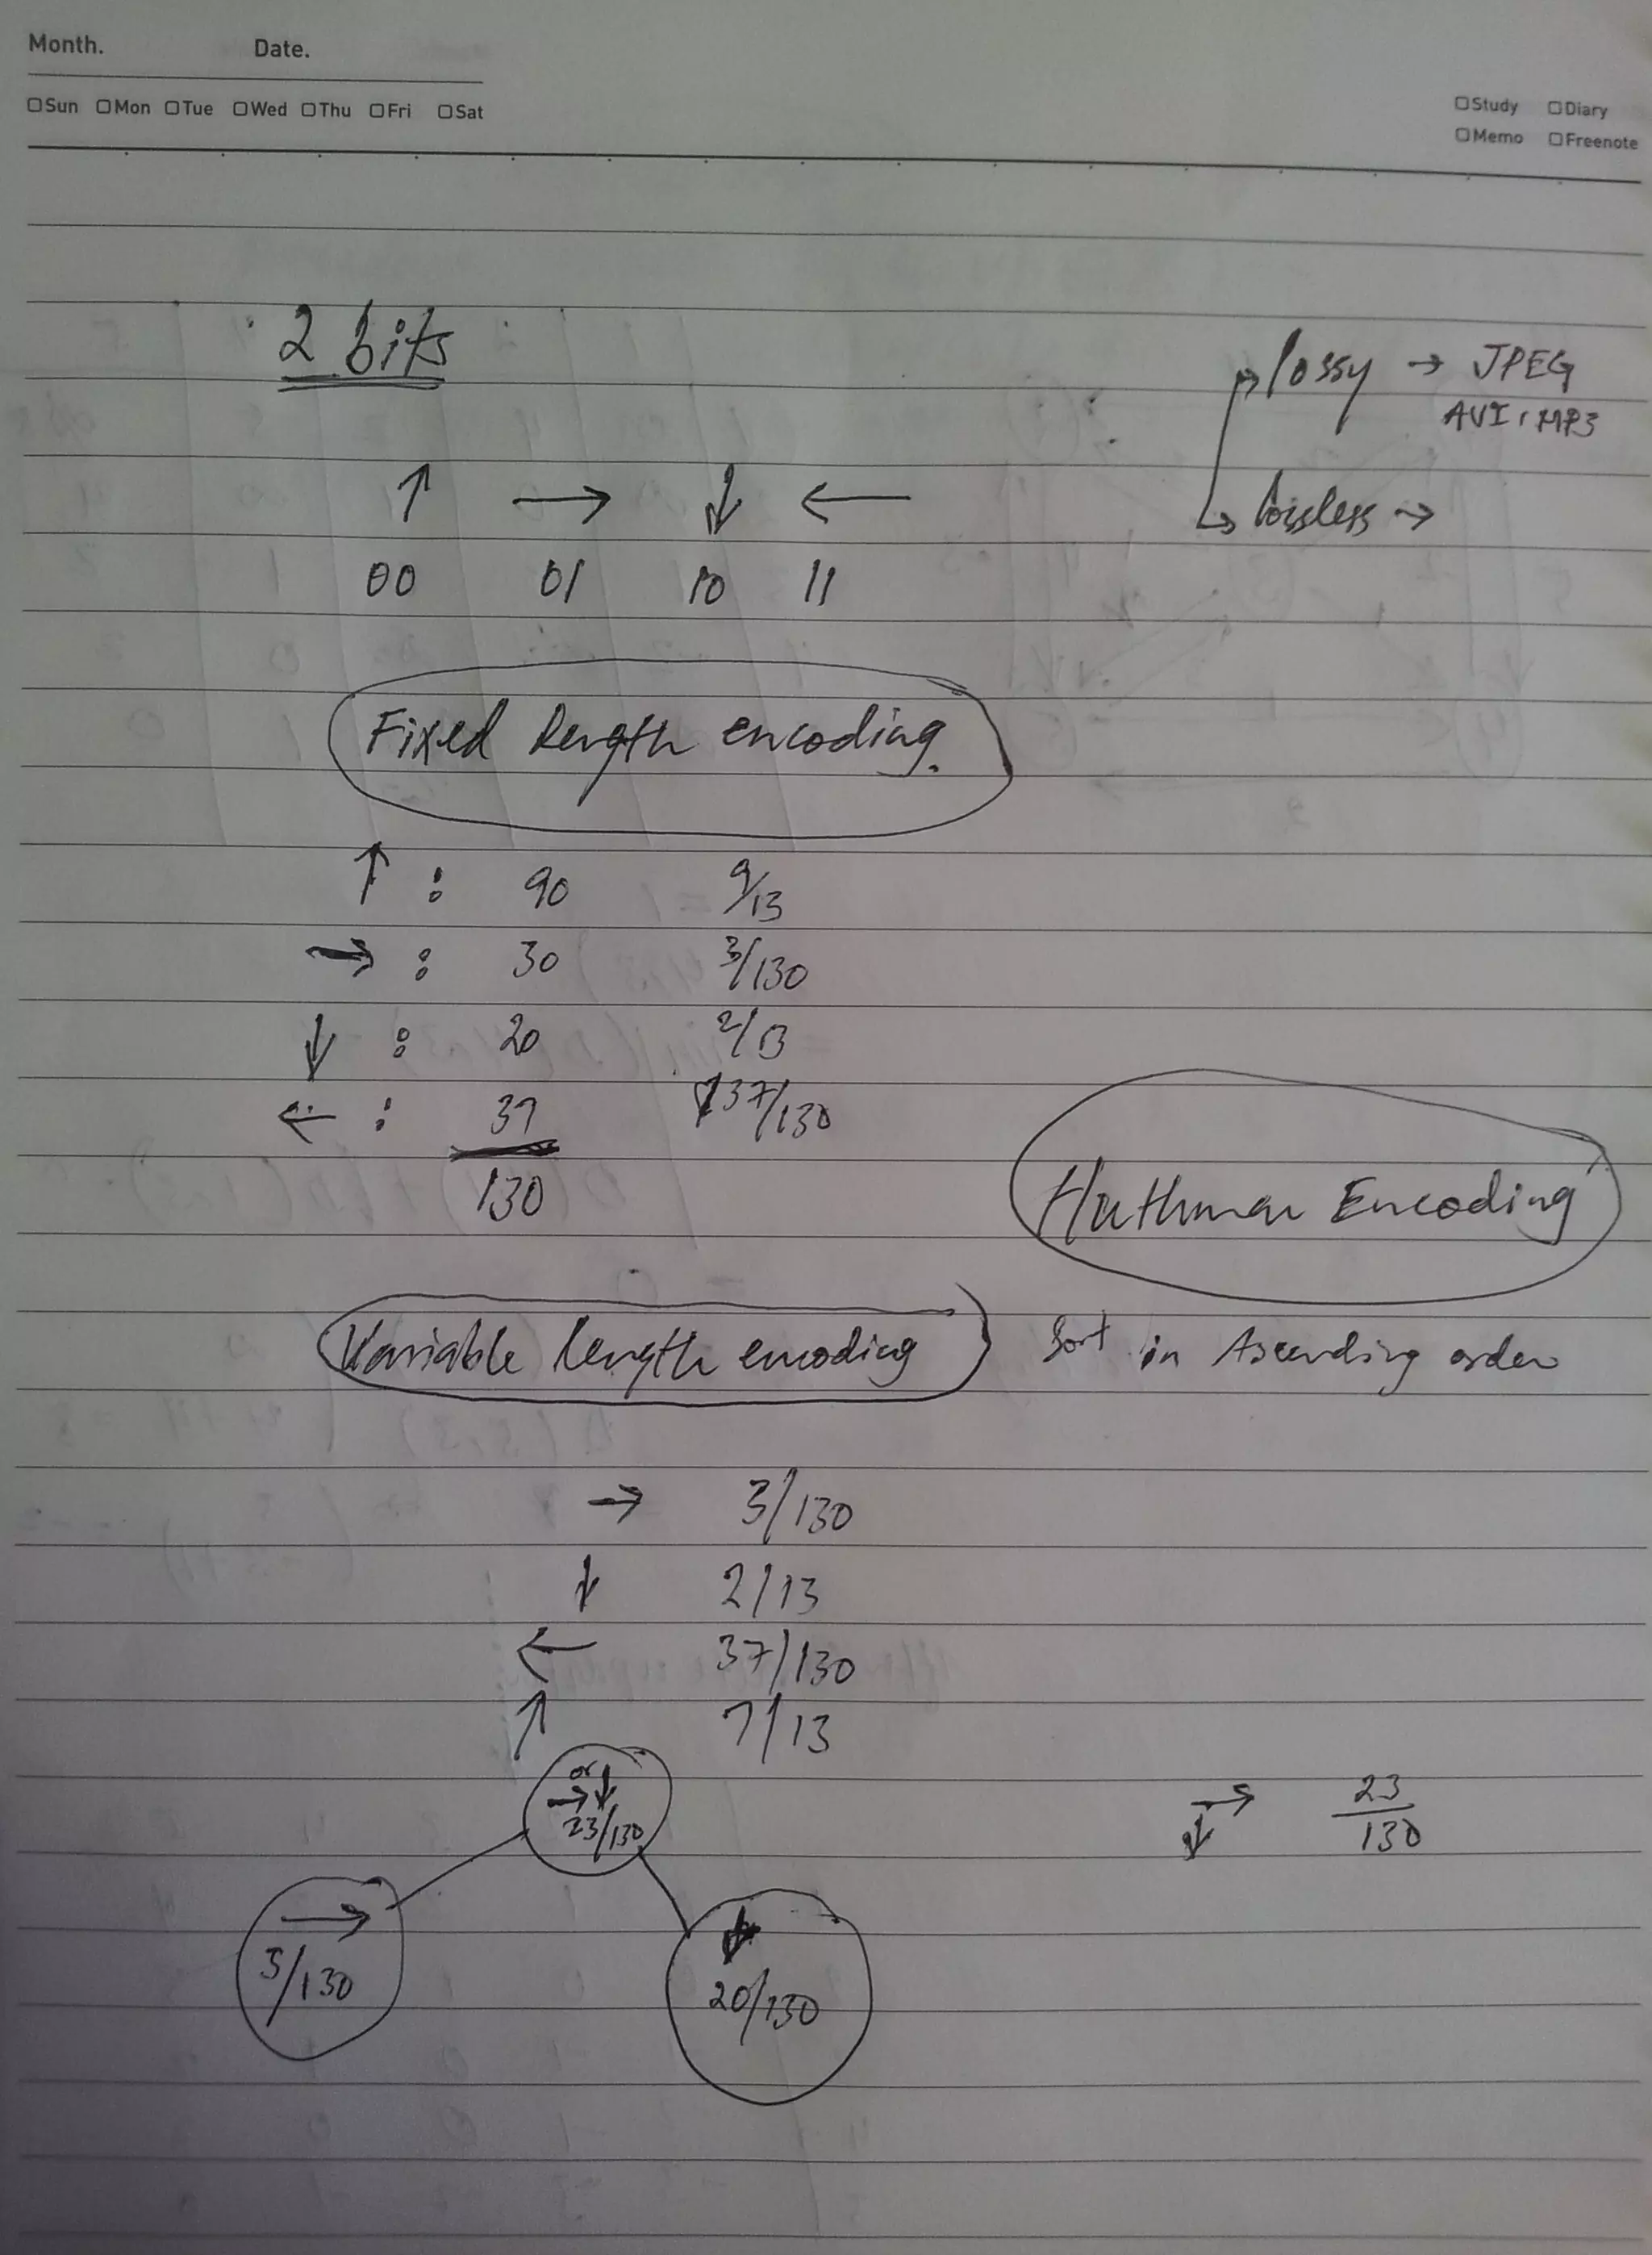 Month. Date.
□Sun □Mon □Tue □Wed □Thu □Fri □Sat
□Study □Diary
□Memo □Freenote
2 bits
↳ lossy → JPEG
AVI, MP3
↳ lossless →
↑ → ↓ ←
00 01 10 11
Fixed length encoding.
↑ : 90 9/13
→ : 30 3/130
↓ : 20 2/13
← : 37 37/130
130
Huthman Encoding
Variable length encoding
Sort in Ascending order
→ 3/130
↓ 2/13
← 37/130
↑ 7/13
or
→ ↓
23/130
→ 23/130
↓
→
3/130
↓
20/130